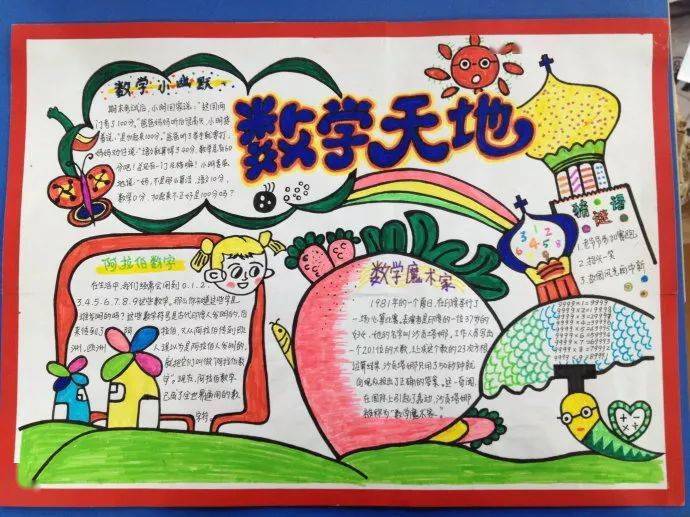 数学天地
数学小幽默
期末考试后,小明回家说:"这回两
门考了100分。"爸爸妈妈听后很高兴,小明接
着说:"是加起来100分。"爸爸听了举手就要打,
妈妈劝住说:"语文就算得了40分,数学总有60
分吧!
数学0分,加起来不正好是100分吗?
阿拉伯数字
在生活中,我们经常会用到0.1.2.
3.4.5.6.7.8.9这些数字。那么你知道这些字是
谁发明的吗?这些数字符号是古代印度人发明的,后
来传到
阿拉伯,又从阿拉伯传到欧
洲,欧洲
人误以为是阿拉伯人发明的,
就把它们叫做"阿拉伯数
字"。现在,阿拉伯数字
已成了全世界通用的数
字符
数学魔术家
1981年的一个夏日,在印度举行了
一场心算比赛。表演者是印度的一位37岁的
妇女,她的名字叫沙贡塔娜。工作人员写出
一个201位的大数,让求这个数的23次方根
运算结果,沙贡塔娜只用了50秒钟就
向观众报出了正确的答案。这一奇闻,
在国际上引起了轰动,沙贡塔娜
被称为"数学魔术家"。
猜谜语
1.老爷爷参加赛跑。
2.相兴一笑
3.
3 1 2
6 4 5 8
9999×1=9999
+ -
× ÷